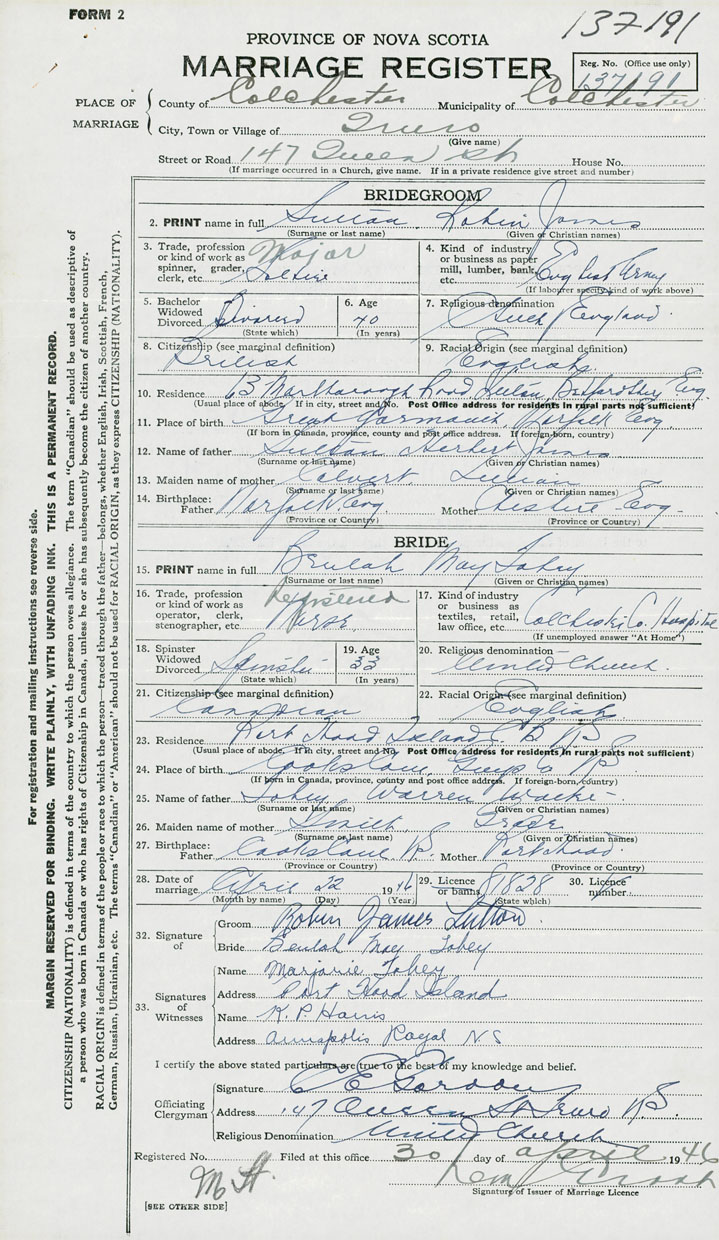 FORM 2
137191
PROVINCE OF NOVA SCOTIA
MARRIAGE REGISTER
Reg. No. (Office use only)
137191
PLACE OF MARRIAGE
County of Colchester Municipality of Colchester
City, Town or Village of Truro
(Give name)
Street or Road 147 Queen St House No.
(If marriage occurred in a Church, give name. If in a private residence give street and number)
BRIDEGROOM
2. PRINT name in full Sutton Robin James
(Surname or last name) (Given or Christian names)
3. Trade, profession or kind of work as spinner, grader, clerk, etc. Major Soldier
4. Kind of industry or business as paper mill, lumber, bank, etc. English Army
(If labourer specify kind of work above)
5. Bachelor Widowed Divorced Divorced
(State which)
6. Age 40
(In years)
7. Religious denomination Church England
8. Citizenship (see marginal definition) British
9. Racial Origin (see marginal definition) English
10. Residence 3 Marlborough Road Luton, Bedfordshire Eng.
(Usual place of abode. If in city, street and No. Post Office address for residents in rural parts not sufficient)
11. Place of birth Great Yarmouth Norfolk Eng
(If born in Canada, province, county and post office address. If foreign-born, country)
12. Name of father Sutton Herbert James
(Surname or last name) (Given or Christian names)
13. Maiden name of mother Calvert Lilian
(Surname or last name) (Given or Christian names)
14. Birthplace: Father Norfolk Eng. Mother Eng.
(Province or Country) (Province or Country)
BRIDE
15. PRINT name in full Beulah May Tobey
(Surname or last name) (Given or Christian names)
16. Trade, profession or kind of work as operator, clerk, stenographer, etc. Registered Nurse
17. Kind of industry or business as textiles, retail, law office, etc. Colchester Co. Hospital
(If unemployed answer "At Home")
18. Spinster Widowed Divorced Spinster
(State which)
19. Age 33
(In years)
20. Religious denomination United Church
21. Citizenship (see marginal definition) Canadian
22. Racial Origin (see marginal definition) English
23. Residence Port Hood Island C.B. N.S.
(Usual place of abode. If in city, street and No. Post Office address for residents in rural parts not sufficient)
24. Place of birth N.S.
(If born in Canada, province, county and post office address. If foreign-born, country)
25. Name of father Tobey Warren
(Surname or last name) (Given or Christian names)
26. Maiden name of mother Smith Grace
(Surname or last name) (Given or Christian names)
27. Birthplace: Father N.S. Mother Port Hood
(Province or Country) (Province or Country)
28. Date of marriage April 22 1946
(Month by name) (Day) (Year)
29. Licence or banns 81828
(State which)
30. Licence number
32. Signature of
Groom Robin James Sutton
Bride Beulah May Tobey
33. Signatures of Witnesses
Name Marjorie Tobey
Address Port Hood Island
Name K. P. Harris
Address Annapolis Royal NS
I certify the above stated particulars are true to the best of my knowledge and belief.
Officiating Clergyman
Signature C E Gordon
Address 147 Queen St Truro N.S.
Religious Denomination United Church
Registered No. Filed at this office 30 day of April 1946
Signature of Issuer of Marriage Licence
[SEE OTHER SIDE]
For registration and mailing instructions see reverse side.
MARGIN RESERVED FOR BINDING. WRITE PLAINLY, WITH UNFADING INK. THIS IS A PERMANENT RECORD.
CITIZENSHIP (NATIONALITY) is defined in terms of the country to which the person owes allegiance. The term "Canadian" should be used as descriptive of
a person who was born in Canada or who has rights of Citizenship in Canada, unless he or she has subsequently become the citizen of another country.
RACIAL ORIGIN is defined in terms of the people or race to which the person—traced through the father—belongs, whether English, Irish, Scottish, French,
German, Russian, Ukrainian, etc. The terms "Canadian" or "American" should not be used for RACIAL ORIGIN, as they express CITIZENSHIP (NATIONALITY).